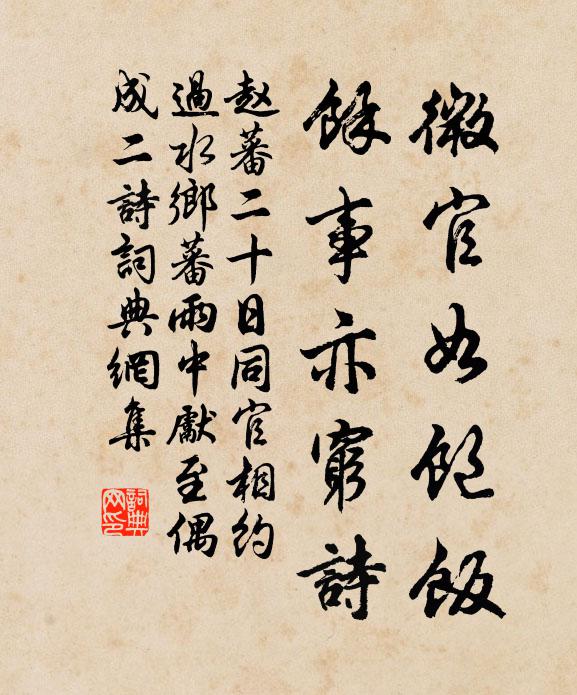 微官如飽飯
餘事亦窮詩
赵蕃二十日同官相約
過水鄉蕃雨中獻至偶
成二詩詞典網集
詞典
网印